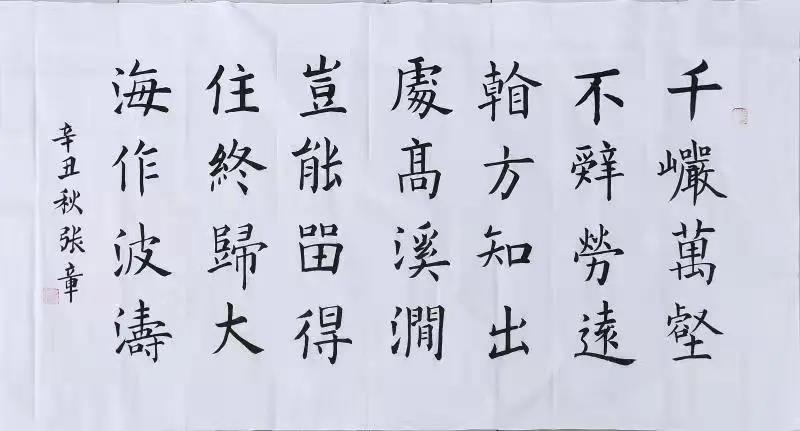 千巗萬壑
不辤勞遠
㪋方知出
處高溪澗
豈能畱得
住終歸大
海作波濤
辛丑秋张章